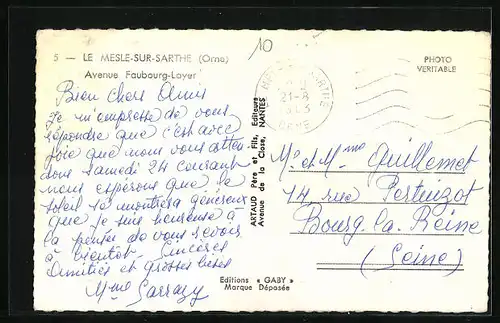 5 — LE MESLE-SUR-SARTHE (Orne)
Avenue Faubourg-Loyer
10
PHOTO
VERITABLE
21-8
ORNE
Bien chers Amis
Je m'empresse de vous
répondre que c'est avec
joie que nous vous atten
dons samedi 24 courant
nous esperons que le
soleil se montrera généreux
que je suis heureuse à
la pensée de vous revoir
à bientôt Sincères
Amitiés et grosses bises
Mme Sarrazy
ARTAUD Père et Fils, Editeurs
Avenue de la Close, NANTES
Mr et Mme Guillemet
14 rue Pertuizot
Bourg-la-Reine
(Seine)
Editions « GABY »
Marque Déposée